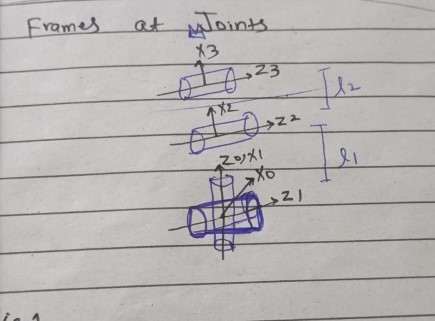 Frames at Joints
X3
Z3
l2
X2
Z2
l1
Z0,X1
X0
Z1